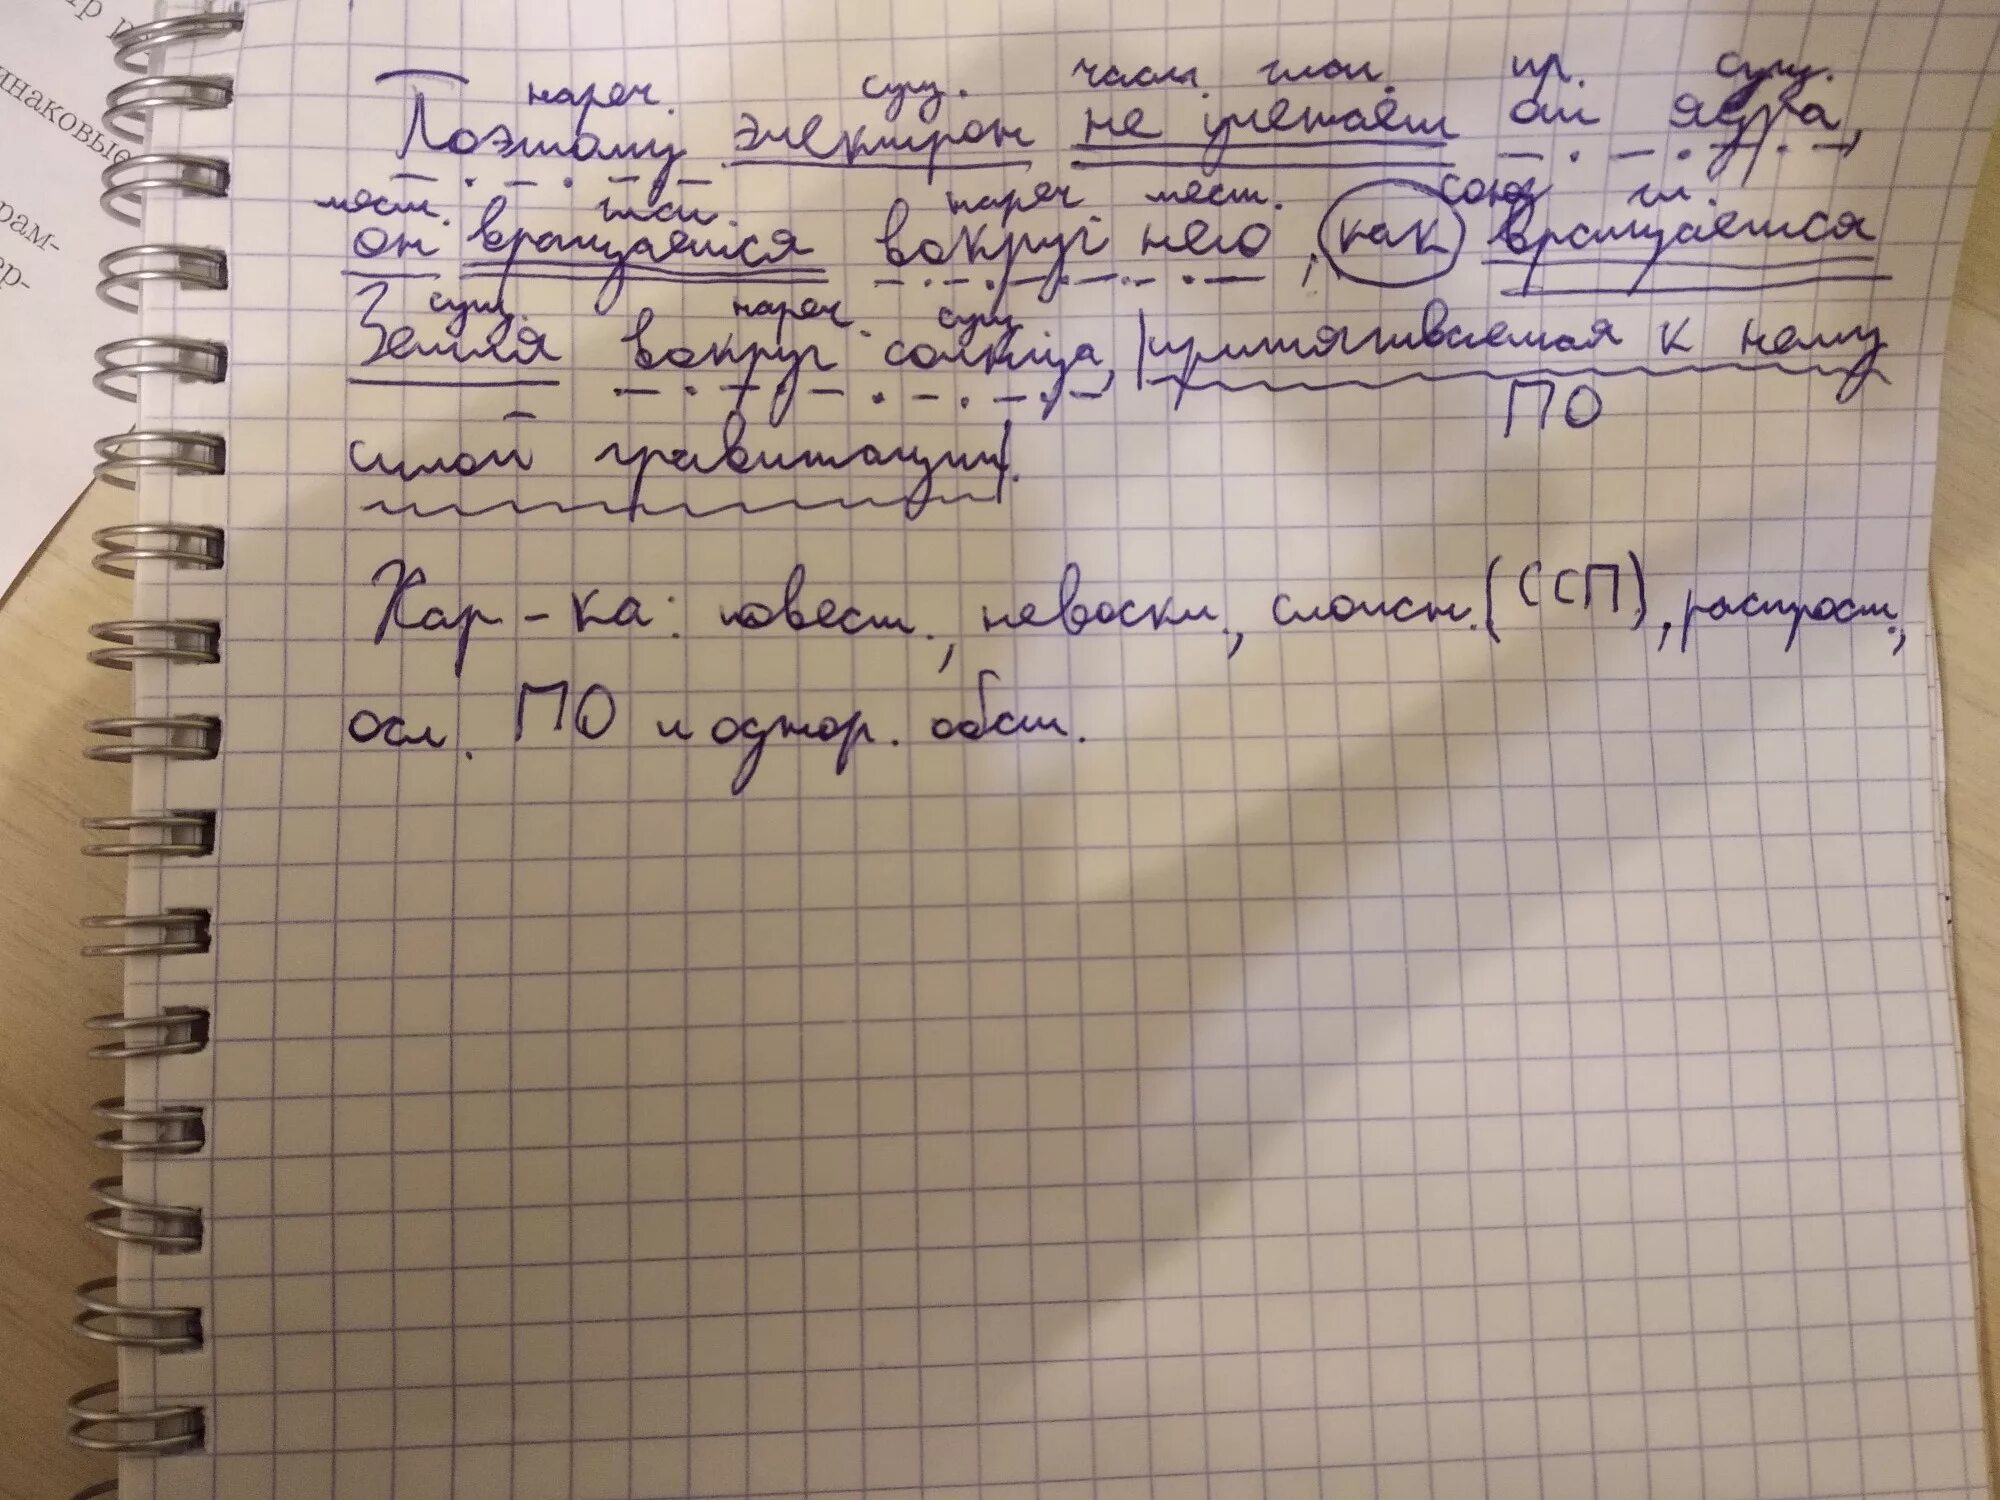 нареч. сущ. част. глаг. пр. сущ.
Поэтому электрон не улетает от ядра,
мест. глаг. нареч мест. союз гл.
он вращается вокруг него, как вращается
сущ. нареч. сущ
Земля вокруг солнца, |притягиваемая к нему
ПО
силой гравитации|.
Хар-ка: повест., невоскл., сложн. (ССП), распрост.,
осл. ПО и однор. обст.
инаковые
рам-
ер-